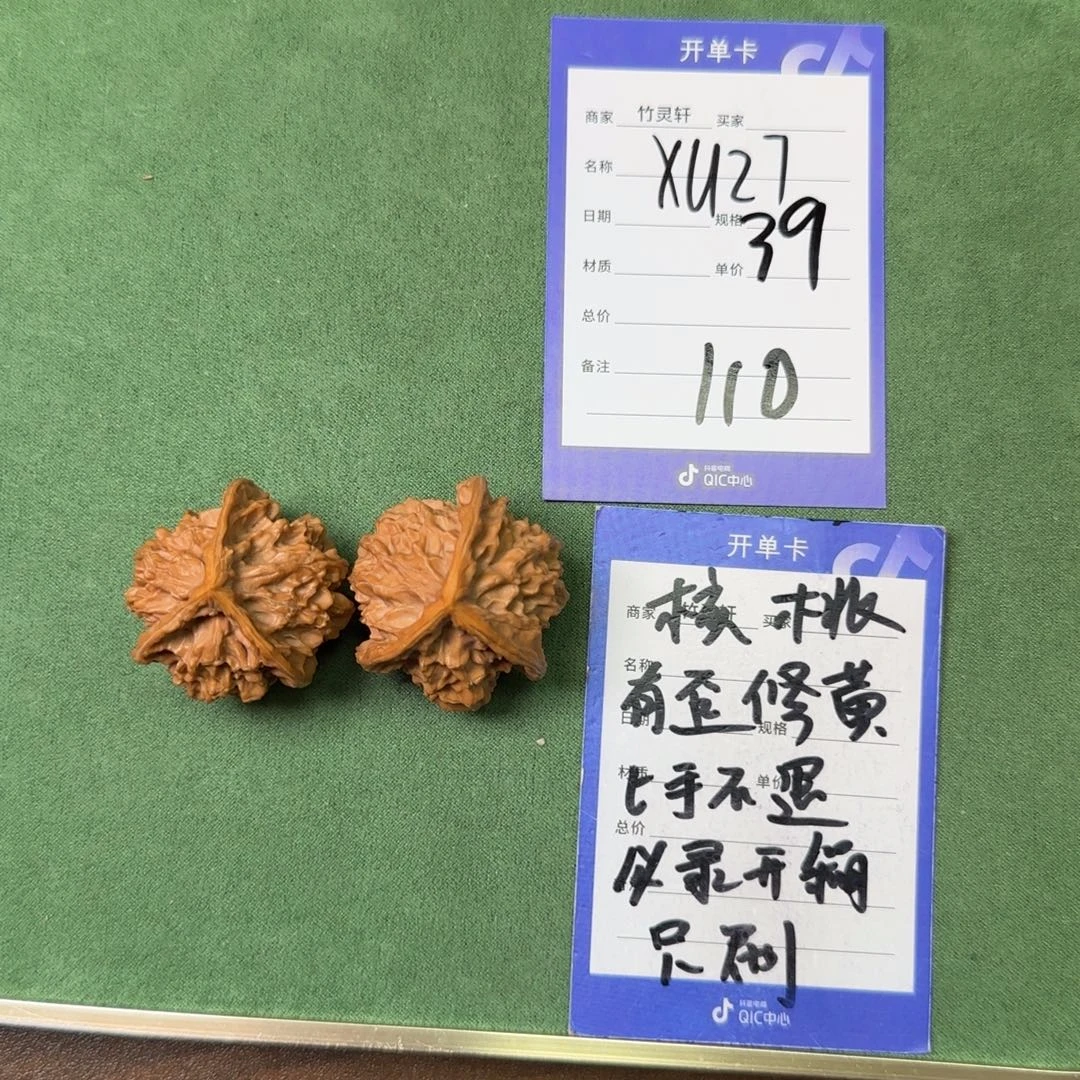 开单卡
商家 竹灵轩 买家
名称 XU27
日期 规格 39
材质 单价
总价
备注 110
抖音电商
QIC中心
开单卡
商家 竹灵轩 买家
核桃
名称
有歪修黄
日期 规格
材质 单价
上手不退
总价
必录开箱
只刷
抖音电商
QIC中心